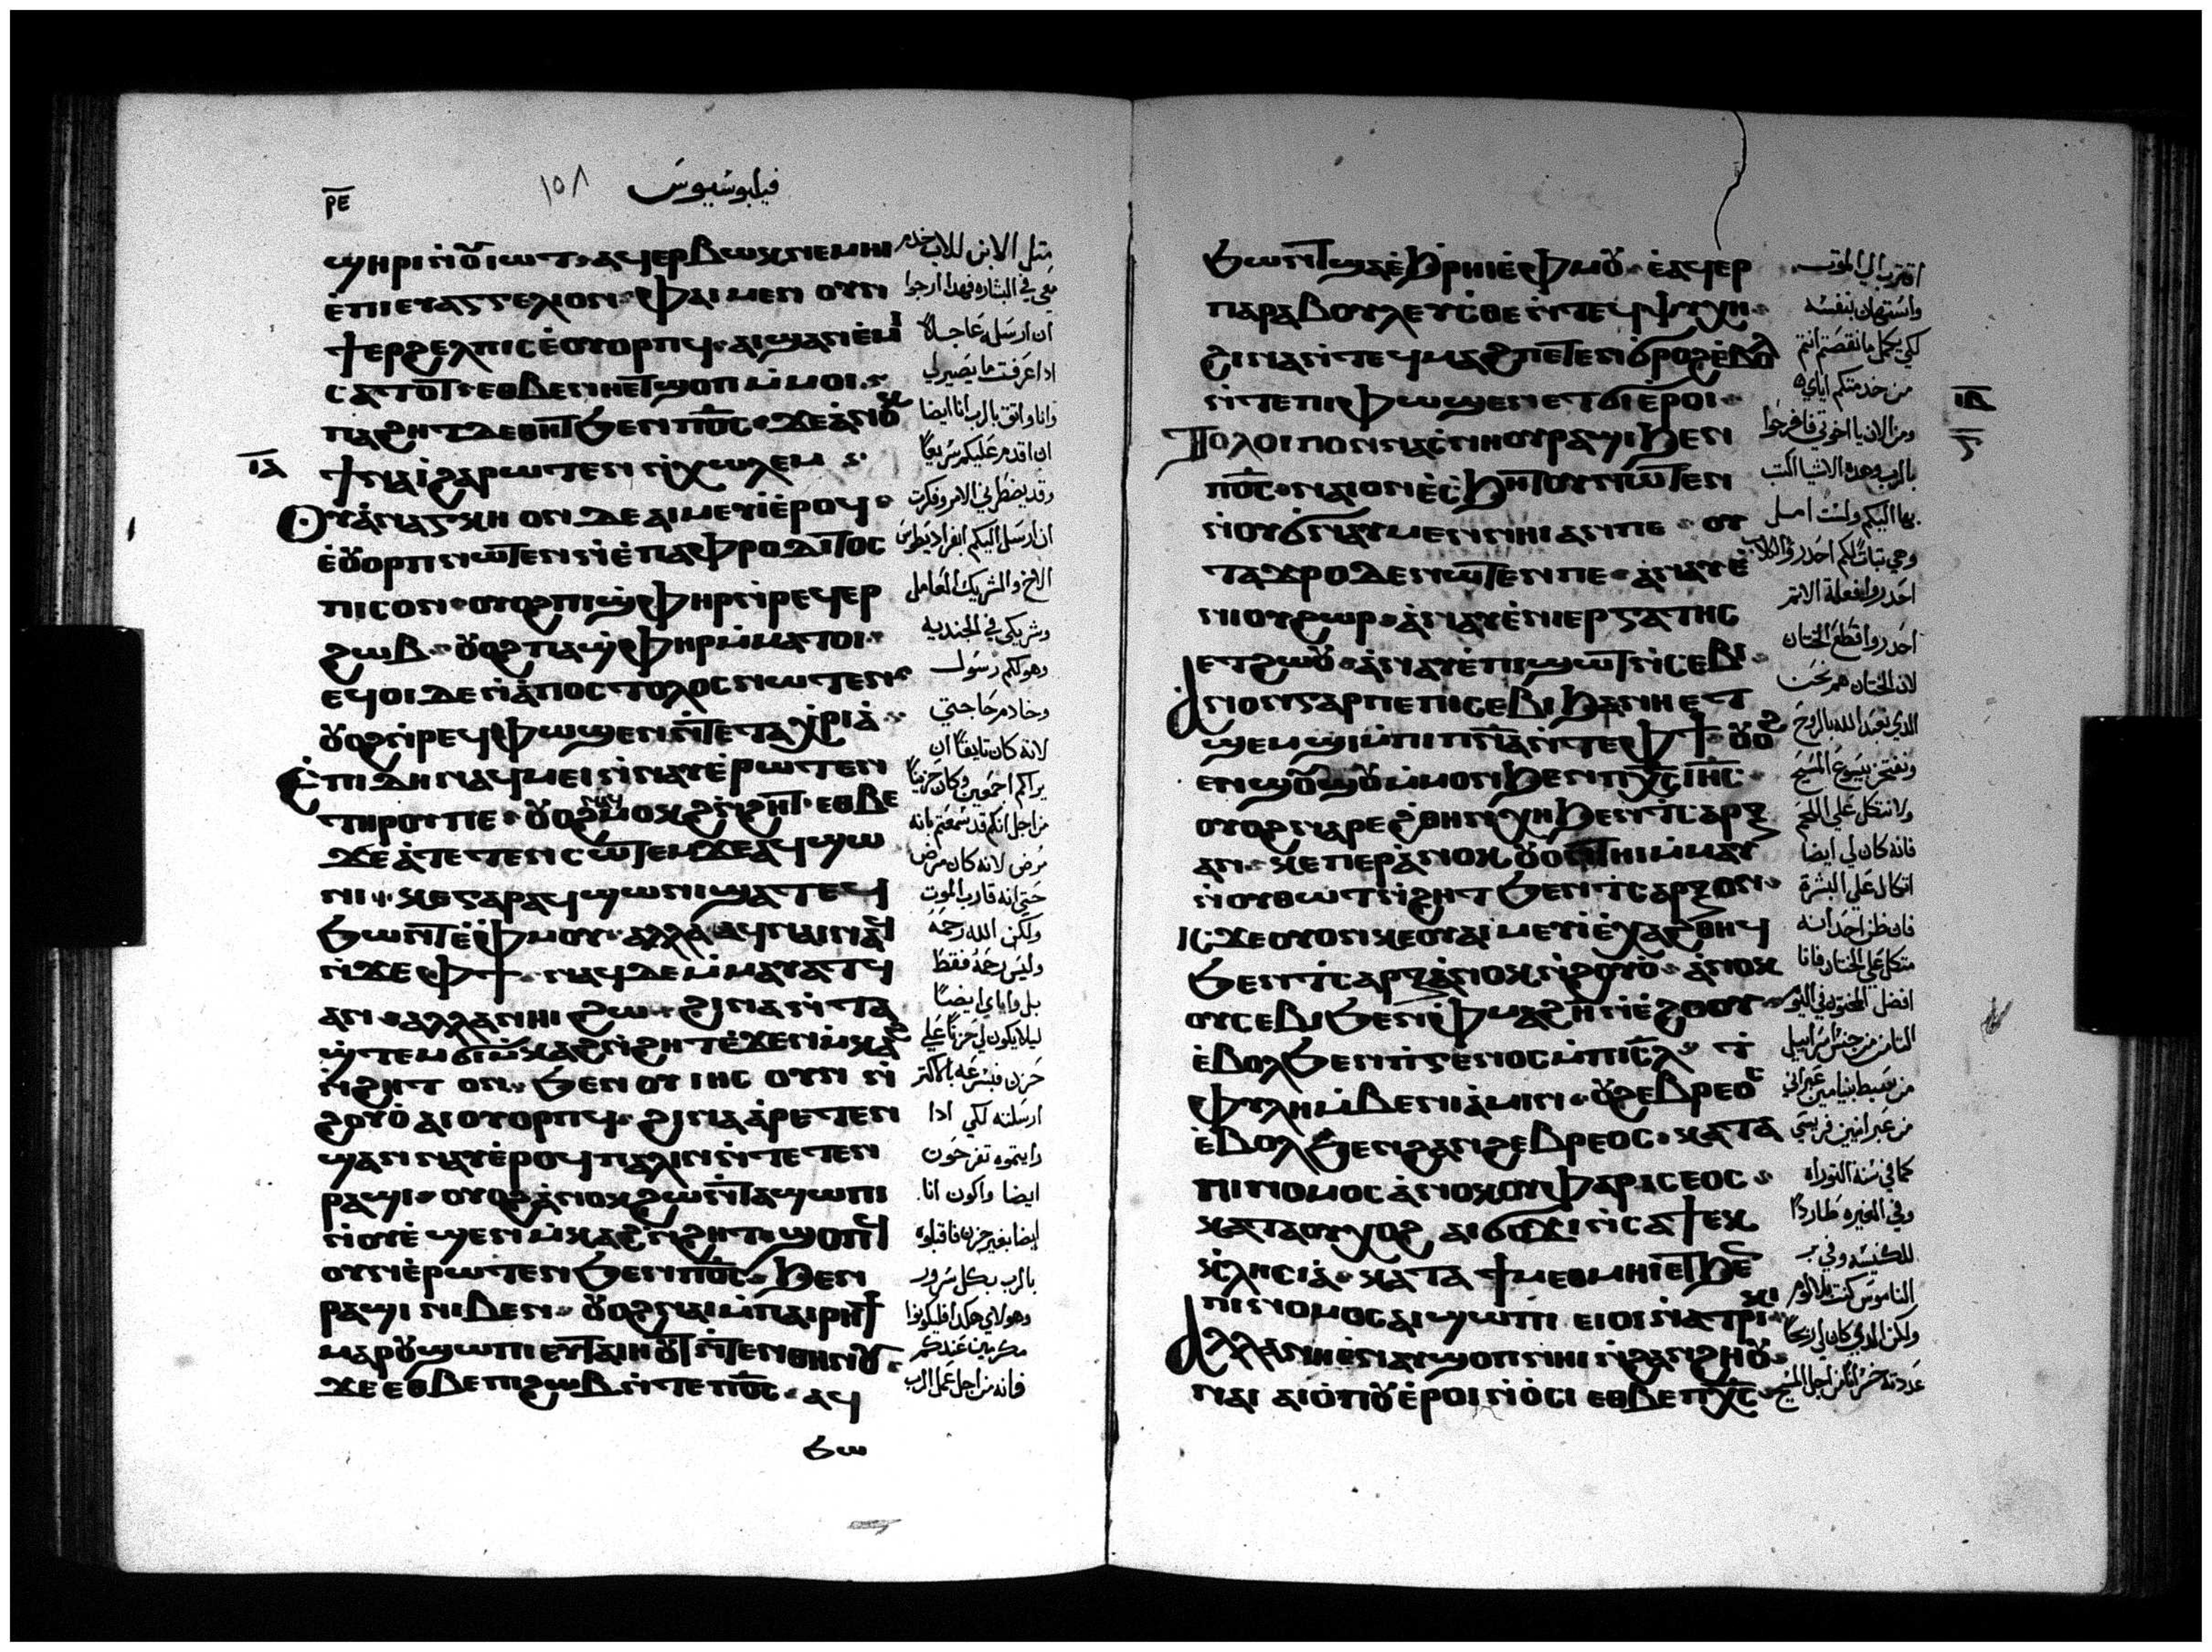 ⲣⲉ
فيلبوسيوس
١٥٨
ϣⲏⲣⲓ ⲛⲟⲩⲓⲱⲧ ⲁϥⲉⲣⲃⲱⲕ ⲛⲉⲙⲏⲓ
مثل الابن للاب خدم
ⲉⲡⲓⲉⲩⲁⲅⲅⲉⲗⲓⲟⲛ ⲫⲁⲓ ⲙⲉⲛ ⲟⲩⲛ
معي في البشاره فهدا ارجوا
ϯⲉⲣϩⲉⲗⲡⲓⲥ ⲉⲟⲩⲟⲣⲡϥ ⲁⲓϣⲁⲛⲉⲙⲓ
ان ارسله عاجلاً
ⲥⲁⲧⲟⲧ ⲉⲑⲃⲉⲛⲏⲉⲧϣⲟⲡ ⲙⲙⲟⲓ
ادا عرفت ما يصير لي
ⲡⲁϩⲏⲧ ⲇⲉ ⲑⲏⲧ ϧⲉⲛ ⲡϭⲟⲥ ϫⲉ ⲁⲛⲟⲕ
وانا واثق بالرب انا ايضا
ⲓⲁ
ϯⲛⲁⲓ ϩⲁⲣⲱⲧⲉⲛ ⲛⲭⲱⲗⲉⲙ
ان اقدم عليكم سريعاً
ⲟⲩⲁⲛⲁⲅⲕⲏ ⲟⲛ ⲇⲉ ⲁⲓⲙⲉⲩⲓ ⲉⲣⲟϥ
وقد يضطرني الامر وفكرت
ⲉⲟⲩⲟⲣⲡ ⲛⲱⲧⲉⲛ ⲛⲉⲡⲁⲫⲣⲟⲇⲓⲧⲟⲥ
ان ارسل اليكم ابفراديطوس
ⲡⲓⲥⲟⲛ ⲟⲩⲟϩ ⲡⲓϣⲫⲏⲣ ⲛⲣⲉϥⲉⲣ
الاخ والشريك العامل
ϩⲱⲃ ⲟⲩⲟϩ ⲡⲁϣⲫⲏⲣ ⲙⲙⲁⲧⲟⲓ
وشريكي في الجنديه
ⲉϥⲟⲓ ⲇⲉ ⲛⲁⲡⲟⲥⲧⲟⲗⲟⲥ ⲛⲱⲧⲉⲛ
وهو لكم رسول
ⲟⲩⲟϩ ⲛⲣⲉϥⲫⲱϣⲉⲛ ⲛⲧⲉ ⲧⲁⲭⲣⲓⲁ
وخادم حاجتي
ⲉⲡⲓⲇⲏ ⲛⲁϥⲙⲉⲓ ⲛⲛⲁⲩ ⲉⲣⲱⲧⲉⲛ
لانه كان تايقاً ان
ⲧⲏⲣⲟⲩⲡⲉ ⲟⲩⲟϩ ⲛⲁϥⲙⲟⲕϩ ⲛϩⲏⲧ ⲉⲑⲃⲉ
يراكم اجمعين وكان حزيناً
ϫⲉ ⲁⲧⲉⲧⲉⲛⲥⲱⲧⲉⲙ ϫⲉ ⲁϥϣⲱ
من اجل انكم قد سمعتم بانه
ⲛⲓ ⲕⲉ ⲅⲁⲣ ⲁϥϣⲱⲛⲓ ϣⲁⲧⲉϥ
مرض لانه كان مرض
ϧⲱⲛⲧ ⲉⲫⲙⲟⲩ ⲁⲗⲗⲁ ⲁϥⲛⲁⲓ ⲛⲁϥ
حتي انه قارب الموت
ⲛϫⲉ ⲫϯ ⲛⲁϥ ⲇⲉ ⲙⲙⲁⲩⲁⲧϥ
ولكن الله رحمه
ⲁⲛ ⲁⲗⲗⲁ ⲛⲏⲓ ϩⲱ ϩⲓⲛⲁ ⲛⲧⲁ
وليس رحمه فقط
ϣⲧⲉⲙϭⲓ ⲙⲕⲁϩ ⲛϩⲏⲧ ⲉϫⲉⲛ ⲙⲕⲁϩ
بل واياي ايضاً
ⲛϩⲏⲧ ⲟⲛ ϧⲉⲛ ⲟⲩⲓⲏⲥ ⲟⲩⲛ ⲛ
ليلا يكون لي حزناً علي
ϩⲟⲩⲟ ⲁⲓⲟⲩⲟⲣⲡϥ ϩⲓⲛⲁ ⲁⲣⲉⲧⲉⲛ
حزن فبسرعه بالاكتر
ϣⲁⲛⲛⲁⲩ ⲉⲣⲟϥ ⲡⲁⲗⲓⲛ ⲛⲧⲉⲧⲉⲛ
ارسلته لكي ادا
ⲣⲁϣⲓ ⲟⲩⲟϩ ⲁⲛⲟⲕ ϩⲱ ⲛⲧⲁϣⲱⲡⲓ
رايتموه تفرحون
ⲛⲟⲩⲉϣⲉⲛ ⲙⲕⲁϩ ⲛϩⲏⲧ ϣⲟⲡϥ
ايضا واكون انا
ⲟⲩⲛ ⲉⲣⲱⲧⲉⲛ ϧⲉⲛ ⲡϭⲟⲥ ϧⲉⲛ
ايضا بغير حزن فاقبلوه
ⲣⲁϣⲓ ⲛⲓⲃⲉⲛ ⲟⲩⲟϩ ⲛⲁⲓ ⲙⲡⲁⲓⲣⲏϯ
بالرب بكل سرور
ⲙⲁⲣⲟⲩϣⲱⲡⲓ ⲉⲩⲧⲁⲓⲏⲟⲩⲧ ⲛⲧⲉⲛ ⲑⲏⲛⲟⲩ
وهولاي هكدا فليكونوا
مكرمين عندكم
ϫⲉ ⲉⲑⲃⲉ ⲡϩⲱⲃ ⲛⲧⲉ ⲡϭⲟⲥ ⲁϥ
فانه من اجل عمل الرب
ϧⲱ
ϧⲱⲛⲧ ϣⲁⲉϧⲣⲏⲓ ⲉⲫⲙⲟⲩ ⲉⲁϥⲉⲣ
اقترب الي الموت
ⲡⲁⲣⲁⲃⲟⲩⲗⲉⲩⲥⲑⲉ ⲛⲧⲉϥⲯⲩⲭⲏ
واستهان بنفسه
ϩⲓⲛⲁ ⲛⲧⲉϥⲙⲁϩ ⲡⲉⲧⲉⲛϭⲣⲟϩ ⲉⲃⲟⲗ
لكي يكمل ما نقصتم انتم
ⲛⲧⲉ ⲡⲓⲫⲱϣⲉⲛ ⲉⲧϭⲓ ⲉⲣⲟⲓ
من خدمتكم اياي
ⲓⲃ
ⲋ
ⲡⲟⲗⲟⲓⲡⲟⲛ ⲛⲁⲥⲛⲏⲟⲩ ⲣⲁϣⲓ ϧⲉⲛ
ومن الان يا اخوتي فافرحوا
ⲡϭⲟⲥ ⲛⲁⲓ ⲟⲛ ⲉⲥϧⲏⲧⲟⲩ ⲛⲱⲧⲉⲛ
بالرب وهده الاشيا اكتب
ⲛⲟⲩϭⲛⲁⲩ ⲙⲉⲛ ⲛⲏⲓ ⲁⲛ ⲡⲉ ⲟⲩ
بها اليكم ولست امل
ⲧⲁϫⲣⲟ ⲇⲉ ⲛⲱⲧⲉⲛ ⲡⲉ ⲁⲛⲁⲩ ⲉ
وهي تباتاً لكم احدروا الكلاب
ⲛⲓⲟⲩϩⲱⲣ ⲁⲛⲁⲩ ⲉⲛⲓⲉⲣⲅⲁⲧⲏⲥ
احدروا فعلة الاتم
ⲉⲧϩⲱⲟⲩ ⲁⲛⲁⲩ ⲉⲡⲓϣⲱⲧ ⲛⲥⲉⲃⲓ
احدروا قطع الختان
ⲁⲛⲟⲛ ⲅⲁⲣ ⲡⲉ ⲡⲓⲥⲉⲃⲓ ϧⲁ ⲛⲏ ⲉⲧ
لان الختان هم نحن
ϣⲉⲙϣⲓ ⲙⲡⲓⲡⲛⲁ ⲛⲧⲉ ⲫϯ ⲟⲩⲟϩ
الذي نعبد الله بالروح
ⲉⲛϣⲟⲩϣⲟⲩ ⲙⲙⲟⲛ ϧⲉⲛ ⲡⲭⲥ ⲓⲏⲥ
ونفتخر بيسوع المسيح
ⲟⲩⲟϩ ⲛⲁⲣⲉ ϩⲑⲏⲛ ⲭⲏ ϧⲉⲛ ⲧⲥⲁⲣⲝ
ولا نتكل علي اللحم
ⲁⲛ ⲕⲉⲡⲉⲣ ⲁⲛⲟⲕ ⲟⲩⲟⲛⲧⲏⲓ ⲙⲙⲁⲩ
فانه كان لي ايضا
ⲛⲟⲩⲑⲱⲧ ⲛϩⲏⲧ ϧⲉⲛ ⲧⲥⲁⲣⲝ ⲟⲛ
اتكال علي البشرة
ⲓⲥϫⲉ ⲟⲩⲟⲛ ⲕⲉⲟⲩⲁⲓ ⲙⲉⲩⲓ ⲉⲭⲁ ⲣⲑⲏϥ
فان ظن احد انه
ϧⲉⲛ ⲧⲥⲁⲣⲝ ⲁⲛⲟⲕ ⲛϩⲟⲩⲟ ⲁⲛⲟⲕ
متكل علي الختان فانا
ⲟⲩⲥⲉⲃⲓ ϧⲉⲛ ⲫⲙⲁϩⲏ ⲛⲉϩⲟⲟⲩ
افضل المختون في اليوم
ⲉⲃⲟⲗ ϧⲉⲛ ⲡⲅⲉⲛⲟⲥ ⲙⲡⲓⲥⲗ ⲧ
التامن من جنس اسراييل
ⲫⲩⲗⲏ ⲙⲃⲉⲛⲓⲁⲙⲓⲛ ⲟⲩϩⲉⲃⲣⲉⲟⲥ
من سبط بنيامين عبراني
ⲉⲃⲟⲗ ϧⲉⲛ ϩⲁⲛϩⲉⲃⲣⲉⲟⲥ ⲕⲁⲧⲁ
من عبرانيين فريسي
ⲡⲓⲛⲟⲙⲟⲥ ⲁⲛⲟⲕ ⲟⲩⲫⲁⲣⲓⲥⲉⲟⲥ
كما في سنة التوراه
ⲕⲁⲧⲁ ⲟⲩⲭⲟϩ ⲁⲓϭⲟϫⲓ ⲛⲥⲁ ϯⲉⲕ
وفي الغيره طارداً
ⲕⲗⲏⲥⲓⲁ ⲕⲁⲧⲁ ϯⲙⲉⲑⲙⲏⲓ ⲉⲧϧⲉⲛ
للكنيسه وفي بر
ⲡⲓⲛⲟⲙⲟⲥ ⲁⲓϣⲱⲡⲓ ⲉⲓⲟⲓ ⲛⲁⲧⲁⲣⲓⲕⲓ
الناموس كنت بلا لوم
ⲁⲗⲗⲁ ⲛⲏ ⲉⲛⲁⲩϣⲟⲡ ⲛⲏⲓ ⲛϩⲁⲛϩⲏⲟⲩ
ولكن الذي كان لي ربحاً
ⲛⲁⲓ ⲁⲓⲟⲡⲟⲩ ⲉⲣⲟⲓ ⲛⲟⲥⲓ ⲉⲑⲃⲉ ⲡⲭⲥ
عددته خسراناً من اجل المسيح